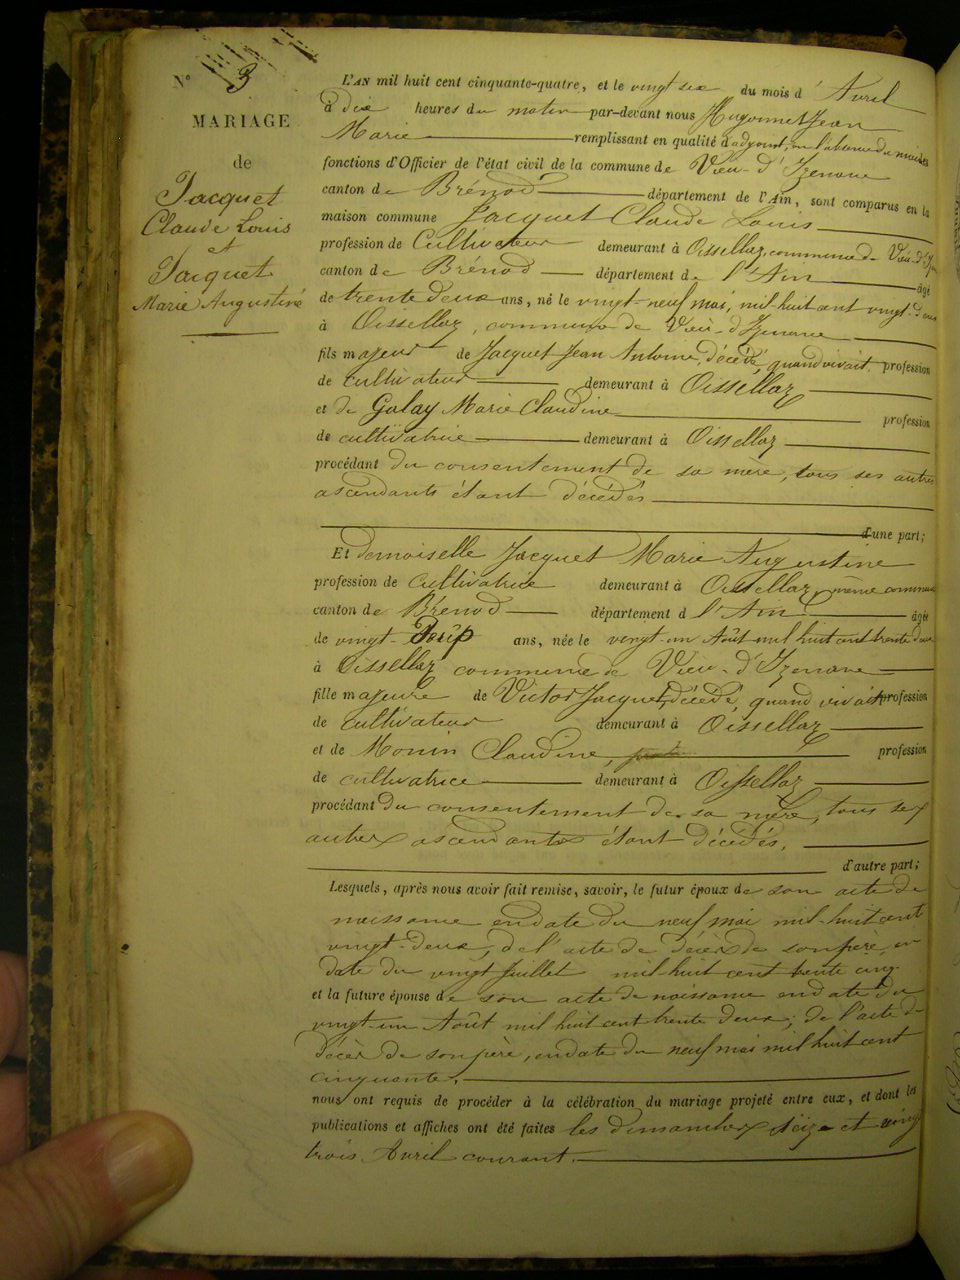 N° 3
MARIAGE
de
Jacquet
Claude Louis
et
Jacquet
Marie Augustine
L'AN mil huit cent cinquante-quatre, et le vingt six du mois d'Avril
à dix heures du matin par-devant nous Hugonnet Jean
Marie remplissant en qualité d'adjoint, en l'absence du maire les
fonctions d'Officier de l'état civil de la commune de Vieu-d'Izenave
canton de Brénod département de l'Ain, sont comparus en la
maison commune Jacquet Claude Louis
profession de Cultivateur demeurant à Oissellaz, commune de Vieu-d'Izen
canton de Brénod département de l'Ain âgé
de trente deux ans, né le vingt-neuf mai, mil-huit cent vingt-deux
à Oissellaz, commune de Vieu-d'Izenave
fils majeur de Jacquet Jean Antoine, décédé, quand vivait profession
de cultivateur demeurant à Oissellaz
et de Galay Marie Claudine profession
de cultivatrice demeurant à Oissellaz
procédant du consentement de sa mère, tous ses autres
ascendants étant décédés
d'une part;
Et demoiselle Jacquet Marie Augustine
profession de cultivatrice demeurant à Oissellaz, même commune
canton de Brénod département d l'Ain âgée
de vingt ans, née le vingt-un Août mil huit cent trente deux
à Oissellaz commune de Vieu-d'Izenave
fille majeure de Victor Jacquet, décédé, quand vivait profession
de cultivateur demeurant à Oissellaz
et de Monin Claudine, profession
de cultivatrice demeurant à Oissellaz
procédant du consentement de sa mère, tous ses
autres ascendants étant décédés.
d'autre part;
Lesquels, après nous avoir fait remise, savoir, le futur époux de son acte de
naissance en date du neuf mai mil-huit cent
vingt-deux, de l'acte de décès de son père, en
date du vingt Juillet mil-huit cent trente cinq.
et la future épouse de son acte de naissance en date du
vingt-un Août mil huit cent trente deux; de l'acte de
décès de son père, en date du neuf mai mil huit cent
cinquante.
nous ont requis de procéder à la célébration du mariage projeté entre eux, et dont les
publications et affiches ont été faites les dimanches seize et vingt
trois Avril courant.